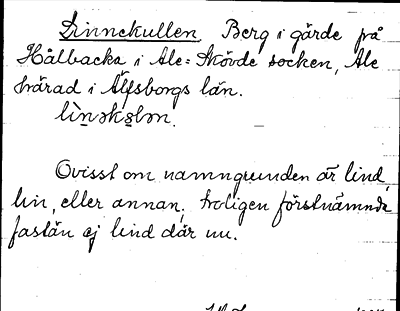 Linnekullen Berg i gärde på
Hålbacka i Ale-Skövde socken, Ale
härad i Älfsborgs län.
Ovisst om namngrunden är lind,
lin, eller annan, troligen förstnämnda
fastän ej lind där nu.